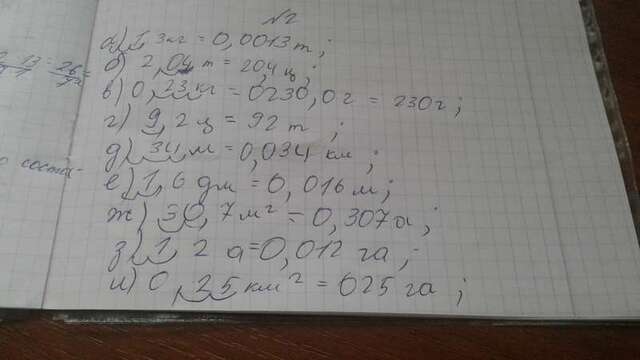 №2
а) 1,3 кг = 0,0013 т;
б) 2,04 т = 20,4 ц;
в) 0,23 кг = 0230,0 г = 230 г;
г) 9,2 ц = 92 т;
д) 34, м = 0,034 км;
е) 1,6 дм = 0,016 м;
ж) 30,7 м² = 0,307 а;
з) 1,2 а = 0,012 га;
и) 0,25 км² = 025 га;